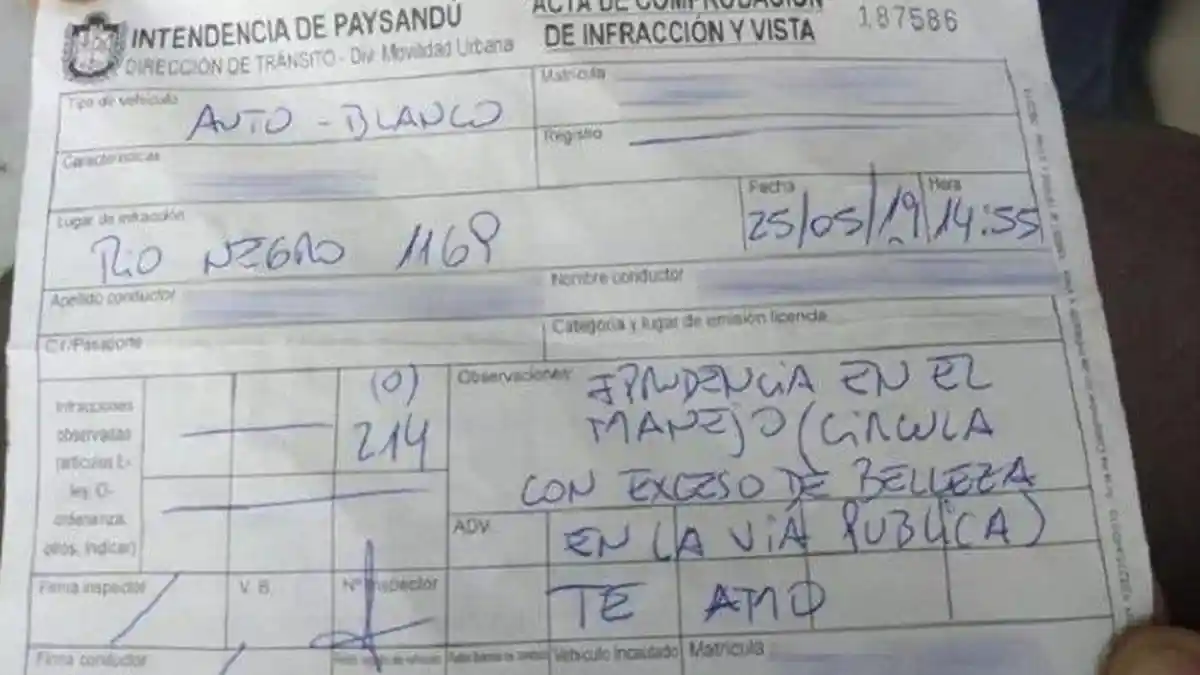 INTENDENCIA DE PAYSANDÚ
DIRECCIÓN DE TRÁNSITO - Div. Movilidad Urbana
ACTA DE COMPROBACIÓN
DE INFRACCIÓN Y VISTA
187586
Tipo de vehículo
AUTO - BLANCO
Matrícula
Registro
Características
Lugar de infracción
RIO NEGRO 1169
Fecha
25/05/19
Hora
14:55
Apellido conductor
Nombre conductor
C.I./Pasaporte
Categoría y lugar de emisión licencia
Infracciones
observadas
(artículos L-
ley, O-
ordenanza,
otros, indicar)
(O)
214
Observaciones:
IPRUDENCIA EN EL
MANEJO (CIRCULA
CON EXCESO DE BELLEZA
EN LA VIA PUBLICA)
TE AMO
ADV.
Firma inspector
V. B.
Nº Inspector
Firma conductor
Vehículo Incautado
Matrícula